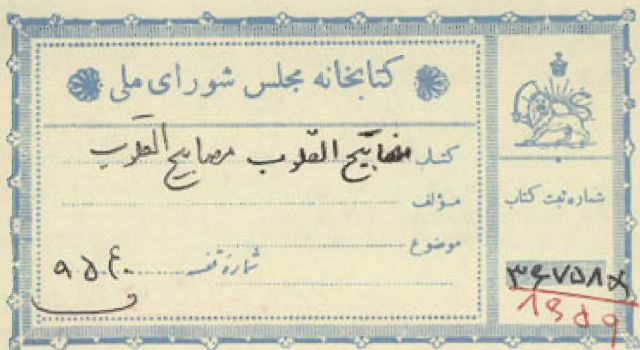 کتابخانه مجلس شورای ملی
کتاب مفاتیح القلوب مصابیح القلوب
مؤلف
موضوع
شماره قفسه ۹۵۴۰
شماره ثبت کتاب